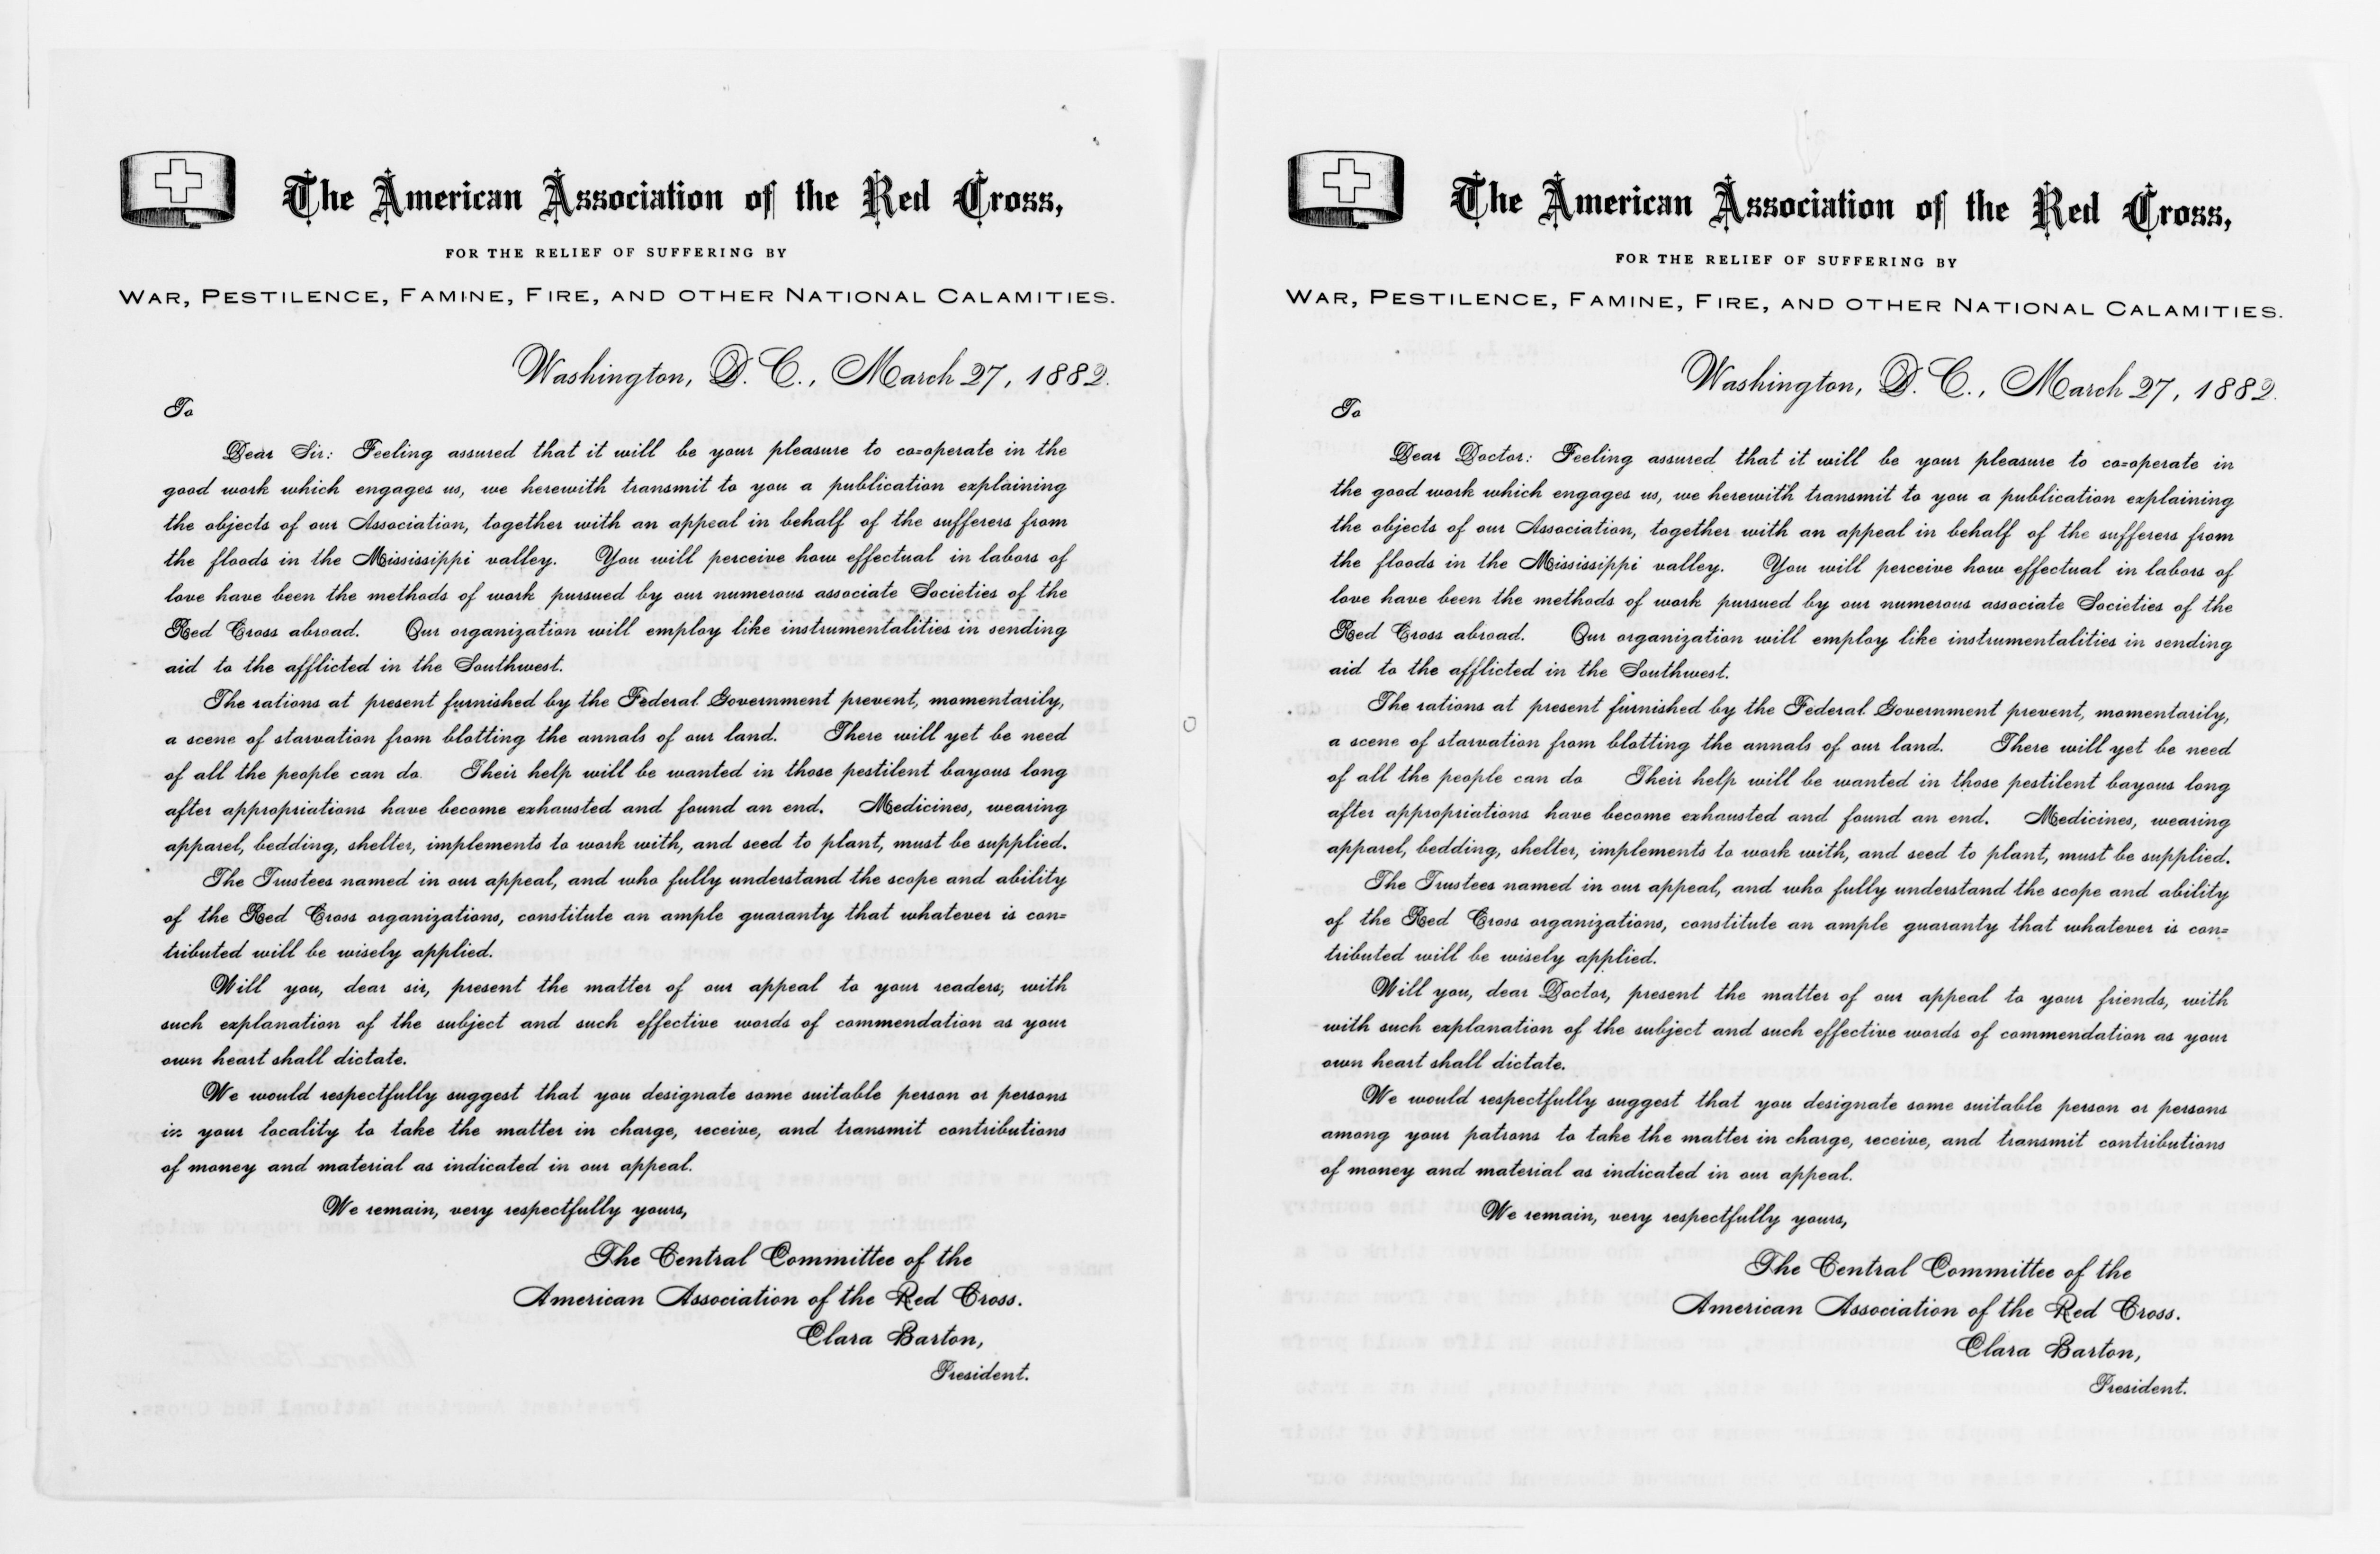 The American Association of the Red Cross,
FOR THE RELIEF OF SUFFERING BY
WAR, PESTILENCE, FAMINE, FIRE, AND OTHER NATIONAL CALAMITIES.
Washington, D. C., March 27, 1882.
To
Dear Sir: Feeling assured that it will be your pleasure to co=operate in the
good work which engages us, we herewith transmit to you a publication explaining
the objects of our Association, together with an appeal in behalf of the sufferers from
the floods in the Mississippi valley. You will perceive how effectual in labors of
love have been the methods of work pursued by our numerous associate Societies of the
Red Cross abroad. Our organization will employ like instrumentalities in sending
aid to the afflicted in the Southwest.
The rations at present furnished by the Federal Government prevent, momentarily,
a scene of starvation from blotting the annals of our land. There will yet be need
of all the people can do. Their help will be wanted in those pestilent bayous long
after appropriations have become exhausted and found an end. Medicines, wearing
apparel, bedding, shelter, implements to work with, and seed to plant, must be supplied.
The Trustees named in our appeal, and who fully understand the scope and ability
of the Red Cross organizations, constitute an ample guaranty that whatever is con=
tributed will be wisely applied.
Will you, dear sir, present the matter of our appeal to your readers, with
such explanation of the subject and such effective words of commendation as your
own heart shall dictate.
We would respectfully suggest that you designate some suitable person or persons
in your locality to take the matter in charge, receive, and transmit contributions
of money and material as indicated in our appeal.
We remain, very respectfully yours,
The Central Committee of the
American Association of the Red Cross.
Clara Barton,
President.
The American Association of the Red Cross,
FOR THE RELIEF OF SUFFERING BY
WAR, PESTILENCE, FAMINE, FIRE, AND OTHER NATIONAL CALAMITIES.
Washington, D. C., March 27, 1882.
To
Dear Doctor: Feeling assured that it will be your pleasure to co=operate in
the good work which engages us, we herewith transmit to you a publication explaining
the objects of our Association, together with an appeal in behalf of the sufferers from
the floods in the Mississippi valley. You will perceive how effectual in labors of
love have been the methods of work pursued by our numerous associate Societies of the
Red Cross abroad. Our organization will employ like instrumentalities in sending
aid to the afflicted in the Southwest.
The rations at present furnished by the Federal Government prevent, momentarily,
a scene of starvation from blotting the annals of our land. There will yet be need
of all the people can do Their help will be wanted in those pestilent bayous long
after appropriations have become exhausted and found an end. Medicines, wearing
apparel, bedding, shelter, implements to work with, and seed to plant, must be supplied.
The Trustees named in our appeal, and who fully understand the scope and ability
of the Red Cross organizations, constitute an ample guaranty that whatever is con=
tributed will be wisely applied.
Will you, dear Doctor, present the matter of our appeal to your friends, with
with such explanation of the subject and such effective words of commendation as your
own heart shall dictate.
We would respectfully suggest that you designate some suitable person or persons
among your patrons to take the matter in charge, receive, and transmit contributions
of money and material as indicated in our appeal.
We remain, very respectfully yours,
The Central Committee of the
American Association of the Red Cross.
Clara Barton,
President.